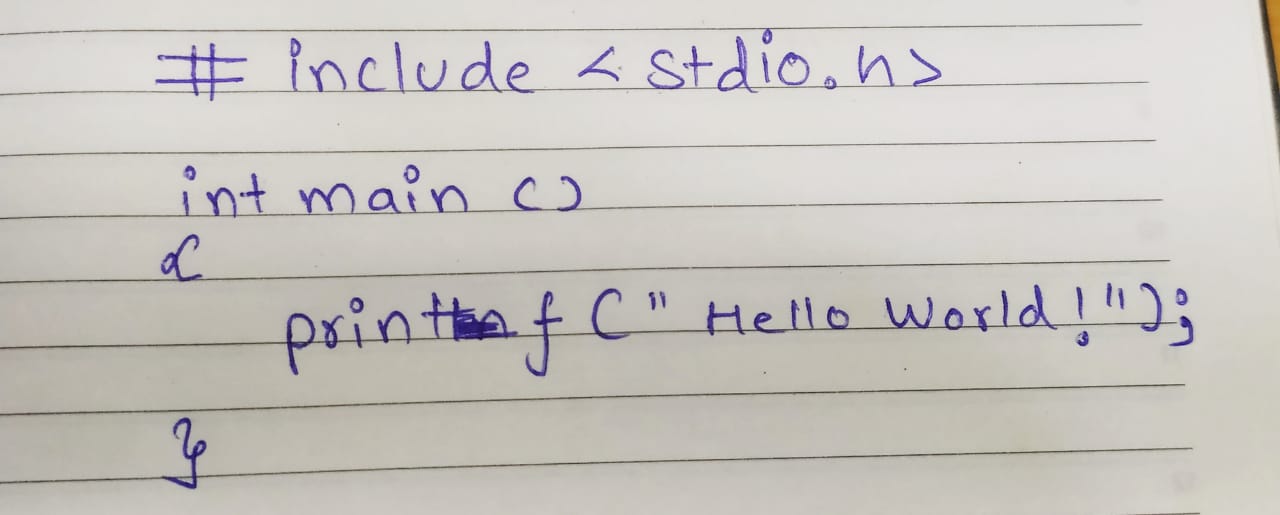 # include <stdio.h>
int main ()
{
printf (" Hello World!");
}